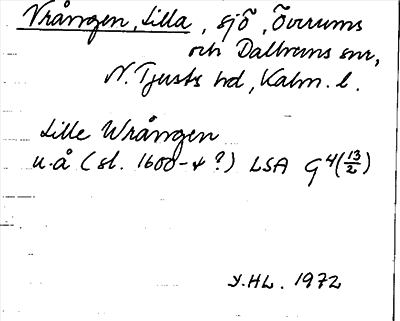 Vrången, Lilla, sjö, Överums
och Dalhems snr,
N. Tjusts hd, Kalm. l.
Lille Wrången
u.å (sl. 1600-t?) LSA G4(13/2)
Y.HL. 1972